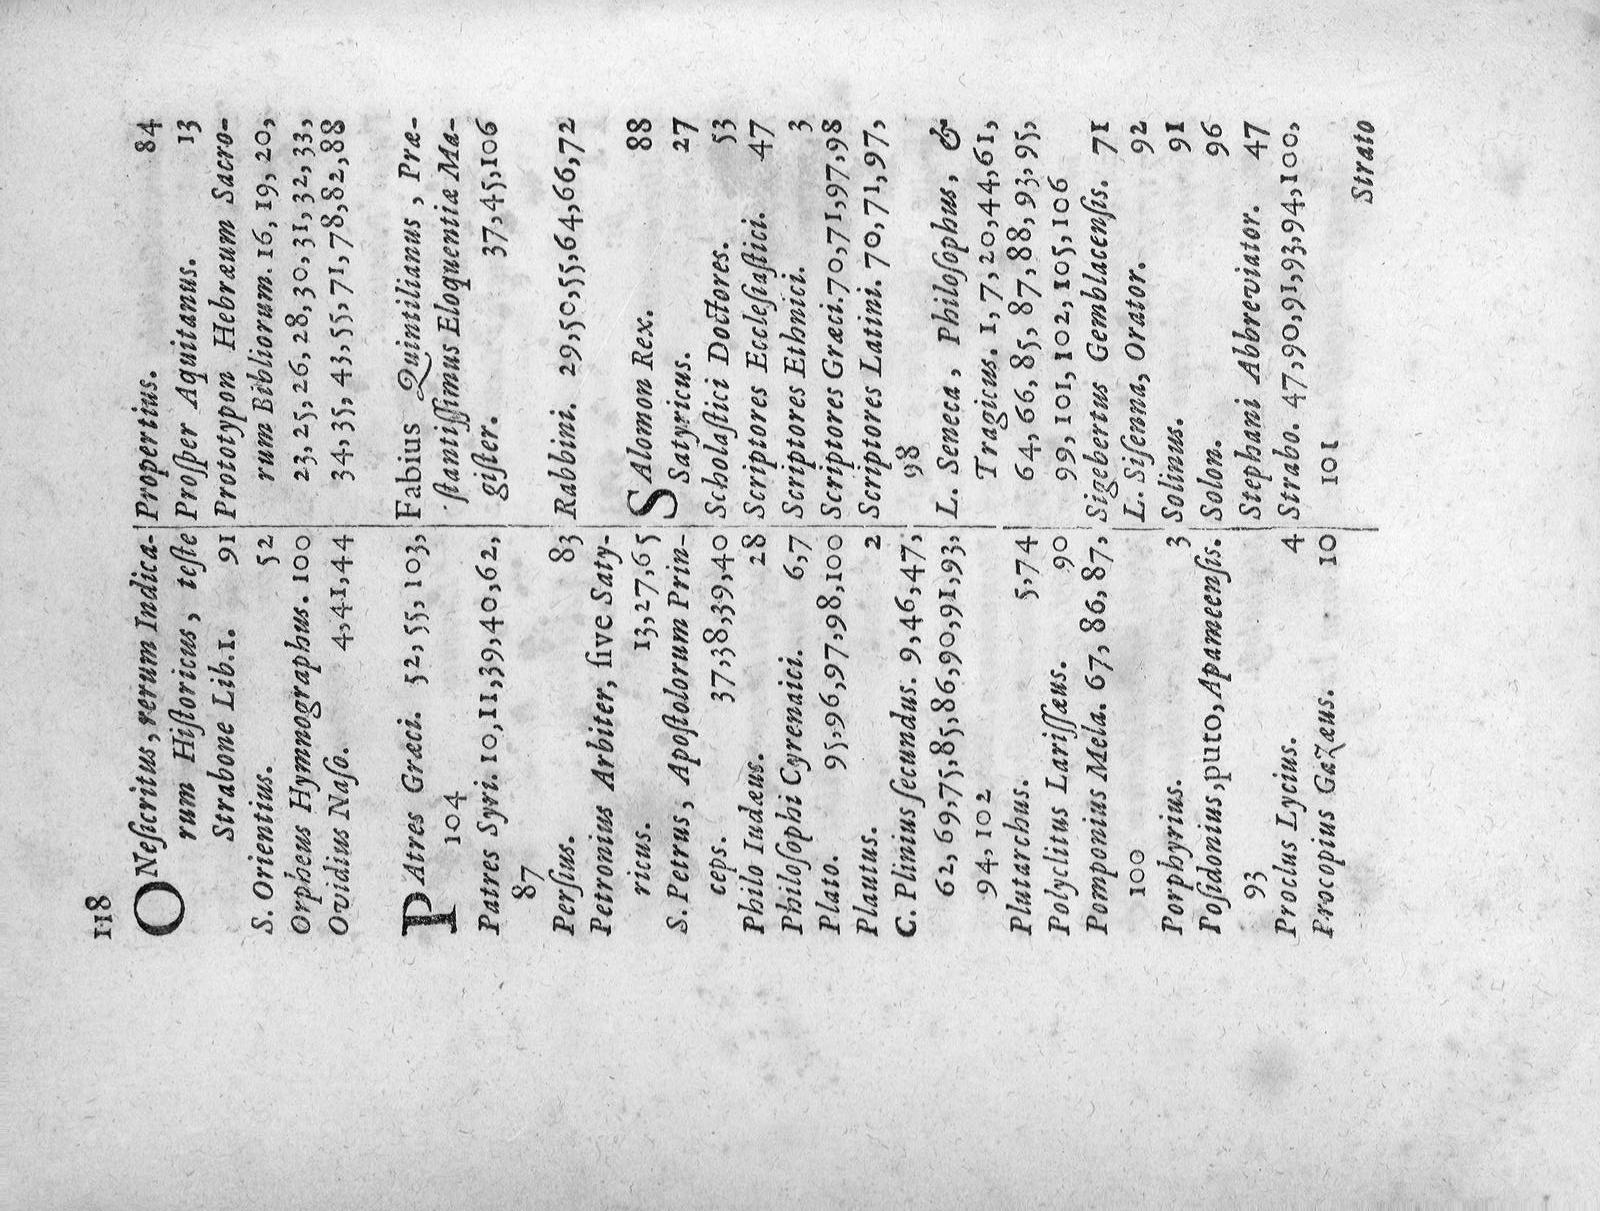 118
ONeſicritus, rerum Indica-
rum Hiſtoricus, teſte
Strabone Lib.1. 91
S. Orientius. 52
Orpheus Hymnographus. 100
Ovidius Naſo. 4,41,44
PAtres Græci. 52, 55, 103,
104
Patres Syri. 10,11,39,40,62,
87
Perſius. 83
Petronius Arbiter, ſive Saty-
ricus. 13,27,65
S. Petrus, Apoſtolorum Prin-
ceps. 37,38,39,40
Philo Iudæus. 28
Philoſophi Cyrenaici. 6,7
Plato. 95,96,97,98,100
Plautus. 2
C. Plinius ſecundus. 9,46,47,
62,69,75,85,86,90,91,93,
94,102
Plutarchus. 5,74
Polyclitus Lariſſæus. 90
Pomponius Mela. 67, 86,87,
100
Porphyrius. 3
Poſidonius,puto,Apameenſis.
93
Proclus Lycius. 4
Procopius Gazæus. 10
Propertius. 84
Proſper Aquitanus. 13
Prototypon Hebræum Sacro-
rum Bibliorum. 16, 19, 20,
23,25,26,28,30,31,32,33,
34,35, 43,55,71,78,82,88
Fabius Quintilianus, Præ-
ſtantiſſimus Eloquentiæ Ma-
giſter. 37,45,106
Rabbini. 29,50,55,64,66,72
SAlomon Rex. 88
Satyricus. 27
Scholaſtici Doctores. 53
Scriptores Eccleſiaſtici. 47
Scriptores Ethnici. 3
Scriptores Græci.70,71,97,98
Scriptores Latini. 70,71,97,
98
L. Seneca, Philoſophus, &
Tragicus. 1,7,20,44,61,
64,66,85,87,88,93,95,
99,101,102,105,106
Sigebertus Gemblacenſis. 71
L. Siſenna, Orator. 92
Solinus. 91
Solon. 96
Stephani Abbreviator. 47
Strabo. 47,90,91,93,94,100,
101
Strato